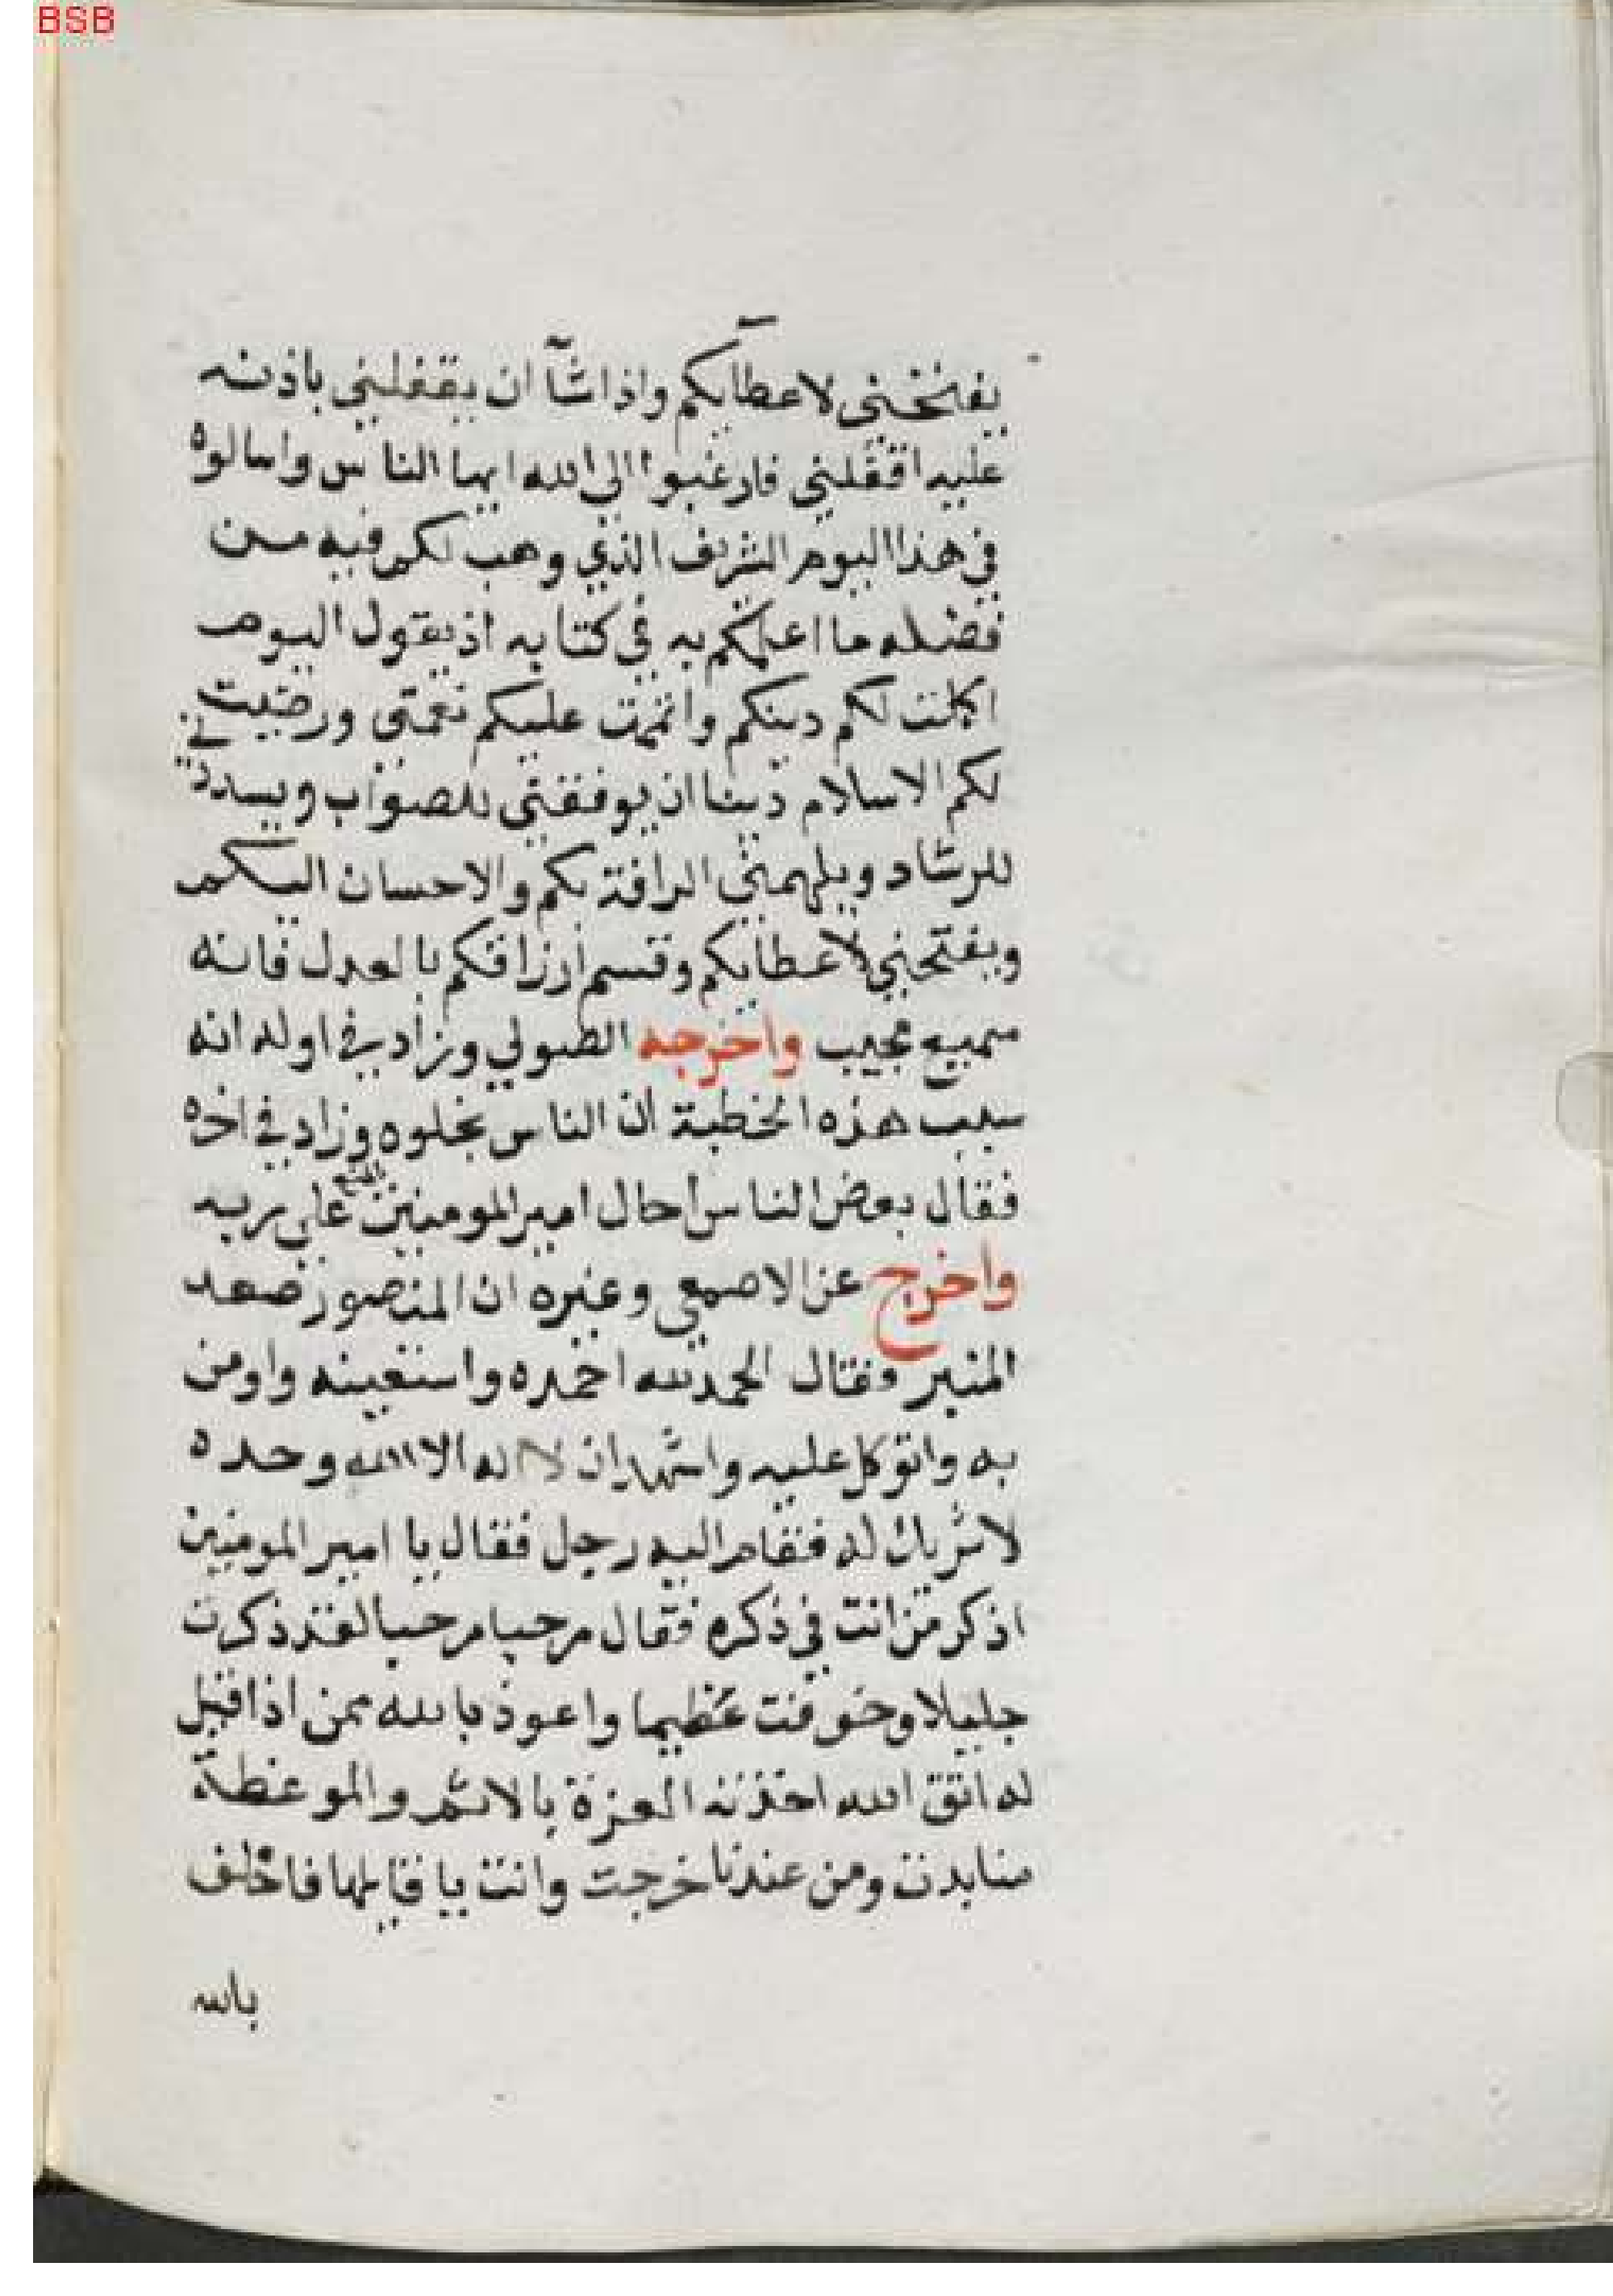 BSB
يفتحني لاعطايكم واذا شآ ان يقفلني باذنه
عليه اقفلني فارغبوا الى الله ايها الناس واسالوه
في هذا اليوم الشريف الذي وهب لكم فيه من
فضله ما اعلمكم به في كتابه اذ يقول اليوم
اكملت لكم دينكم واتممت عليكم نعمتى ورضيت
لكم الاسلام دينا ان يوفقنى للصواب ويسددني
للرشاد ويلهمنى الرافة بكم والاحسان اليكم
ويفتحني لاعطايكم وقسم ارزاقكم بالعدل فانه
سميع مجيب واخرجه الصولي وزاد في اوله انه
سبب هذه الخطبة ان الناس بخلوه وزاد في اخره
فقال بعض الناس احال امير المومنين بالمنع على ربه
واخرج عن الاصمعي وغيره ان المنصور صعد
المنبر وفقال الحمد لله احمده واستعينه واومن
به واتوكل عليه واشهد ان لا اله الا الله وحده
لا شريك له فقام اليه رجل فقال يا امير المومنين
اذكر من انت في ذكره فقال مرحبا مرحبا لقد ذكرت
جليلا وخوفت عظيما واعوذ بالله ممن اذا قيل
له اتق الله اخذته العزة بالاثم والموعظة
منا بدت ومن عندنا خرجت وانت يا قايلها فاحلف
بالله